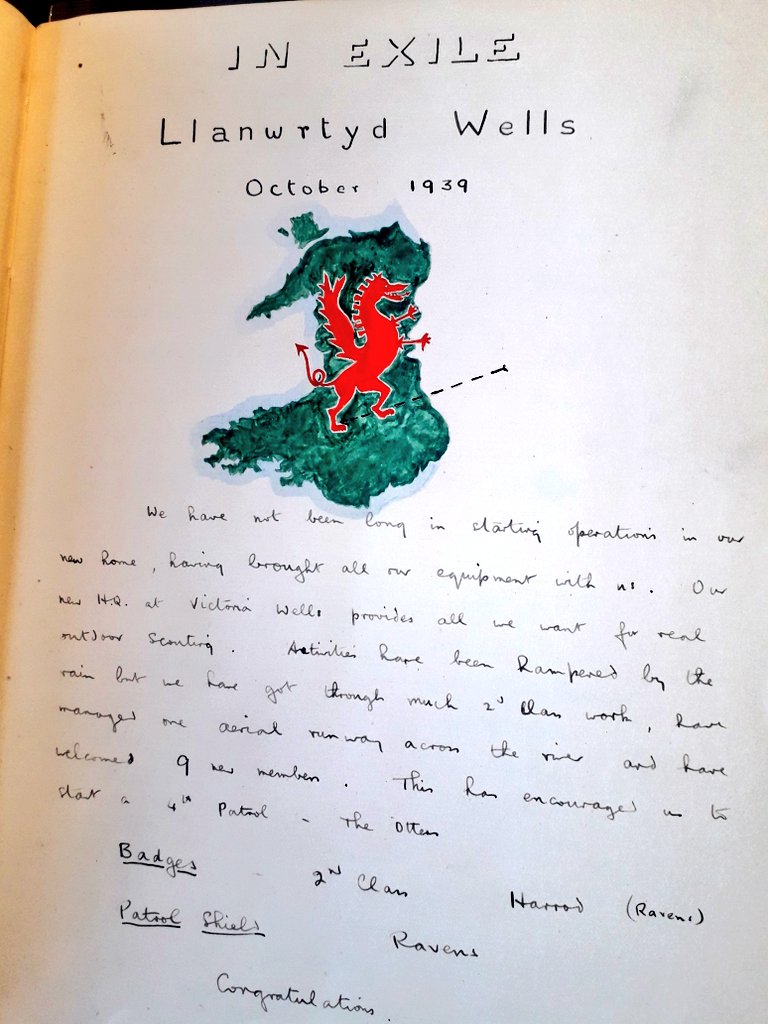 IN EXILE
Llanwrtyd Wells
October 1939
We have not been long in starting operations in our
new home, having brought all our equipment with us. Our
new H.Q. at Victoria Wells provides all we want for real
outdoor Scouting. Activities have been hampered by the
rain but we have got through much 2nd Class work, have
managed one aerial runway across the river and have
welcomed 9 new members. This has encouraged us to
start a 4th Patrol - The Otters
Badges 2nd Class Harrod (Ravens)
Patrol Shield Ravens
Congratulations.